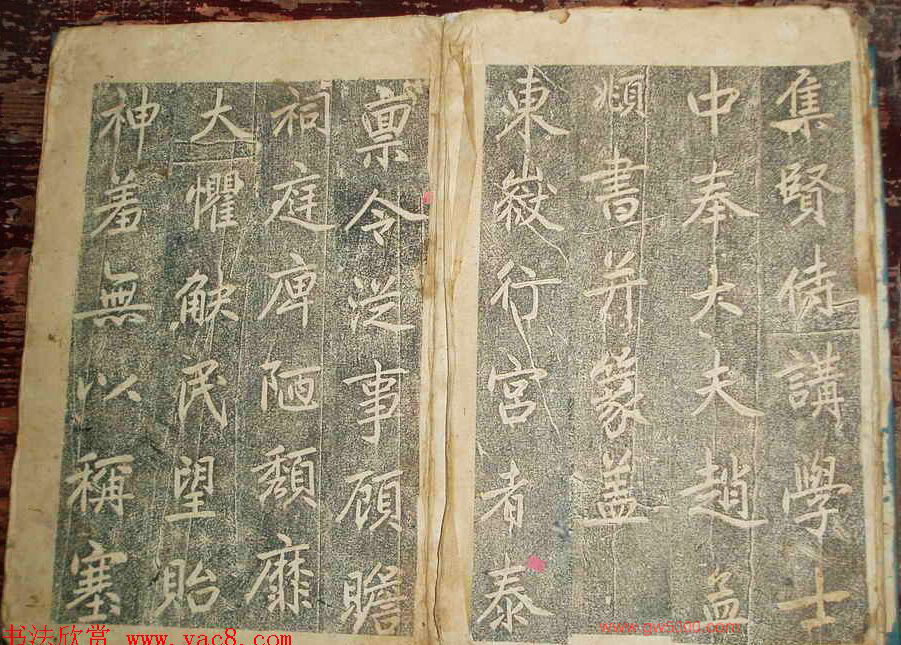 集賢侍講學士
中奉大夫趙孟
頫書并篆盖
東嶽行宫者泰
禀令從事顧瞻
祠庭庳陋頹靡
大懼觖民望貽
神羞無以稱塞
书法欣赏 www.yac8.com